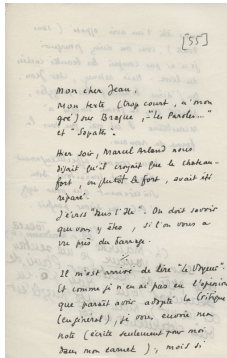 [55]
Mon cher Jean,
Mon texte (trop court, à mon
gré) sur Braque, "les Paroles..."
et "Sapate".
Hier soir, Marcel Arland nous
disait qu'il croyait que le chateau-
fort, ou plutôt le fort, avait été
réparé.
J'écris "dans l'Ile". On doit savoir
que vous y êtes, si l'on vous a
vu près du barrage.
Il m'est arrivé de lire "le Voyeur".
Et comme je n'en ai pas eu l'opinion
que paraît avoir adopté la Critique
(en général), je vous envoie une
note (écrite seulement pour moi
dans mon carnet), mais si